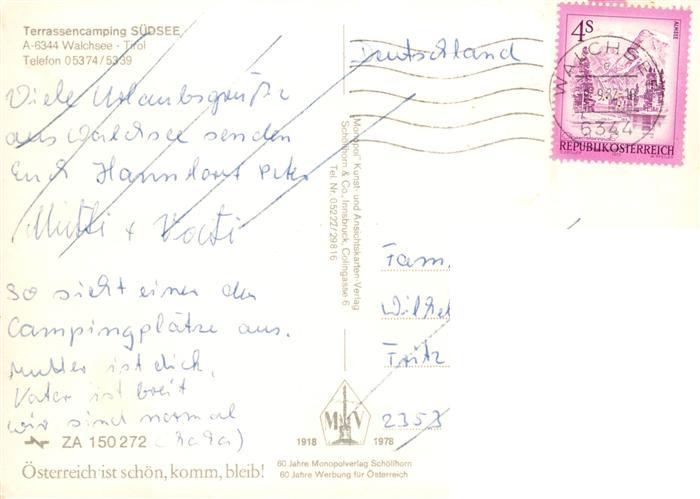 Terrassencamping SÜDSEE
A-6344 Walchsee - Tirol
Telefon 05374/5339
Viele Urlaubsgrüße
aus Walchsee senden
Euch Hannelore Peter
Mutti + Vati
So sieht einer der
Campingplätze aus.
Mutter ist dick,
Vater ist breit
wir sind normal
(HaHa)
ZA 150 272
Österreich ist schön, komm, bleib!
"Monopol" Kunst- und Ansichtskarten-Verlag
Schöllhorn & Co., Innsbruck, Colingasse 6
Tel. Nr. 05222/29816
1918 MV 1978
60 Jahre Monopolverlag Schöllhorn
60 Jahre Werbung für Österreich
Deutschland
4S
ALMSEE
REPUBLIK ÖSTERREICH
WALCHSEE
6344
Fam.
Fritz
2353